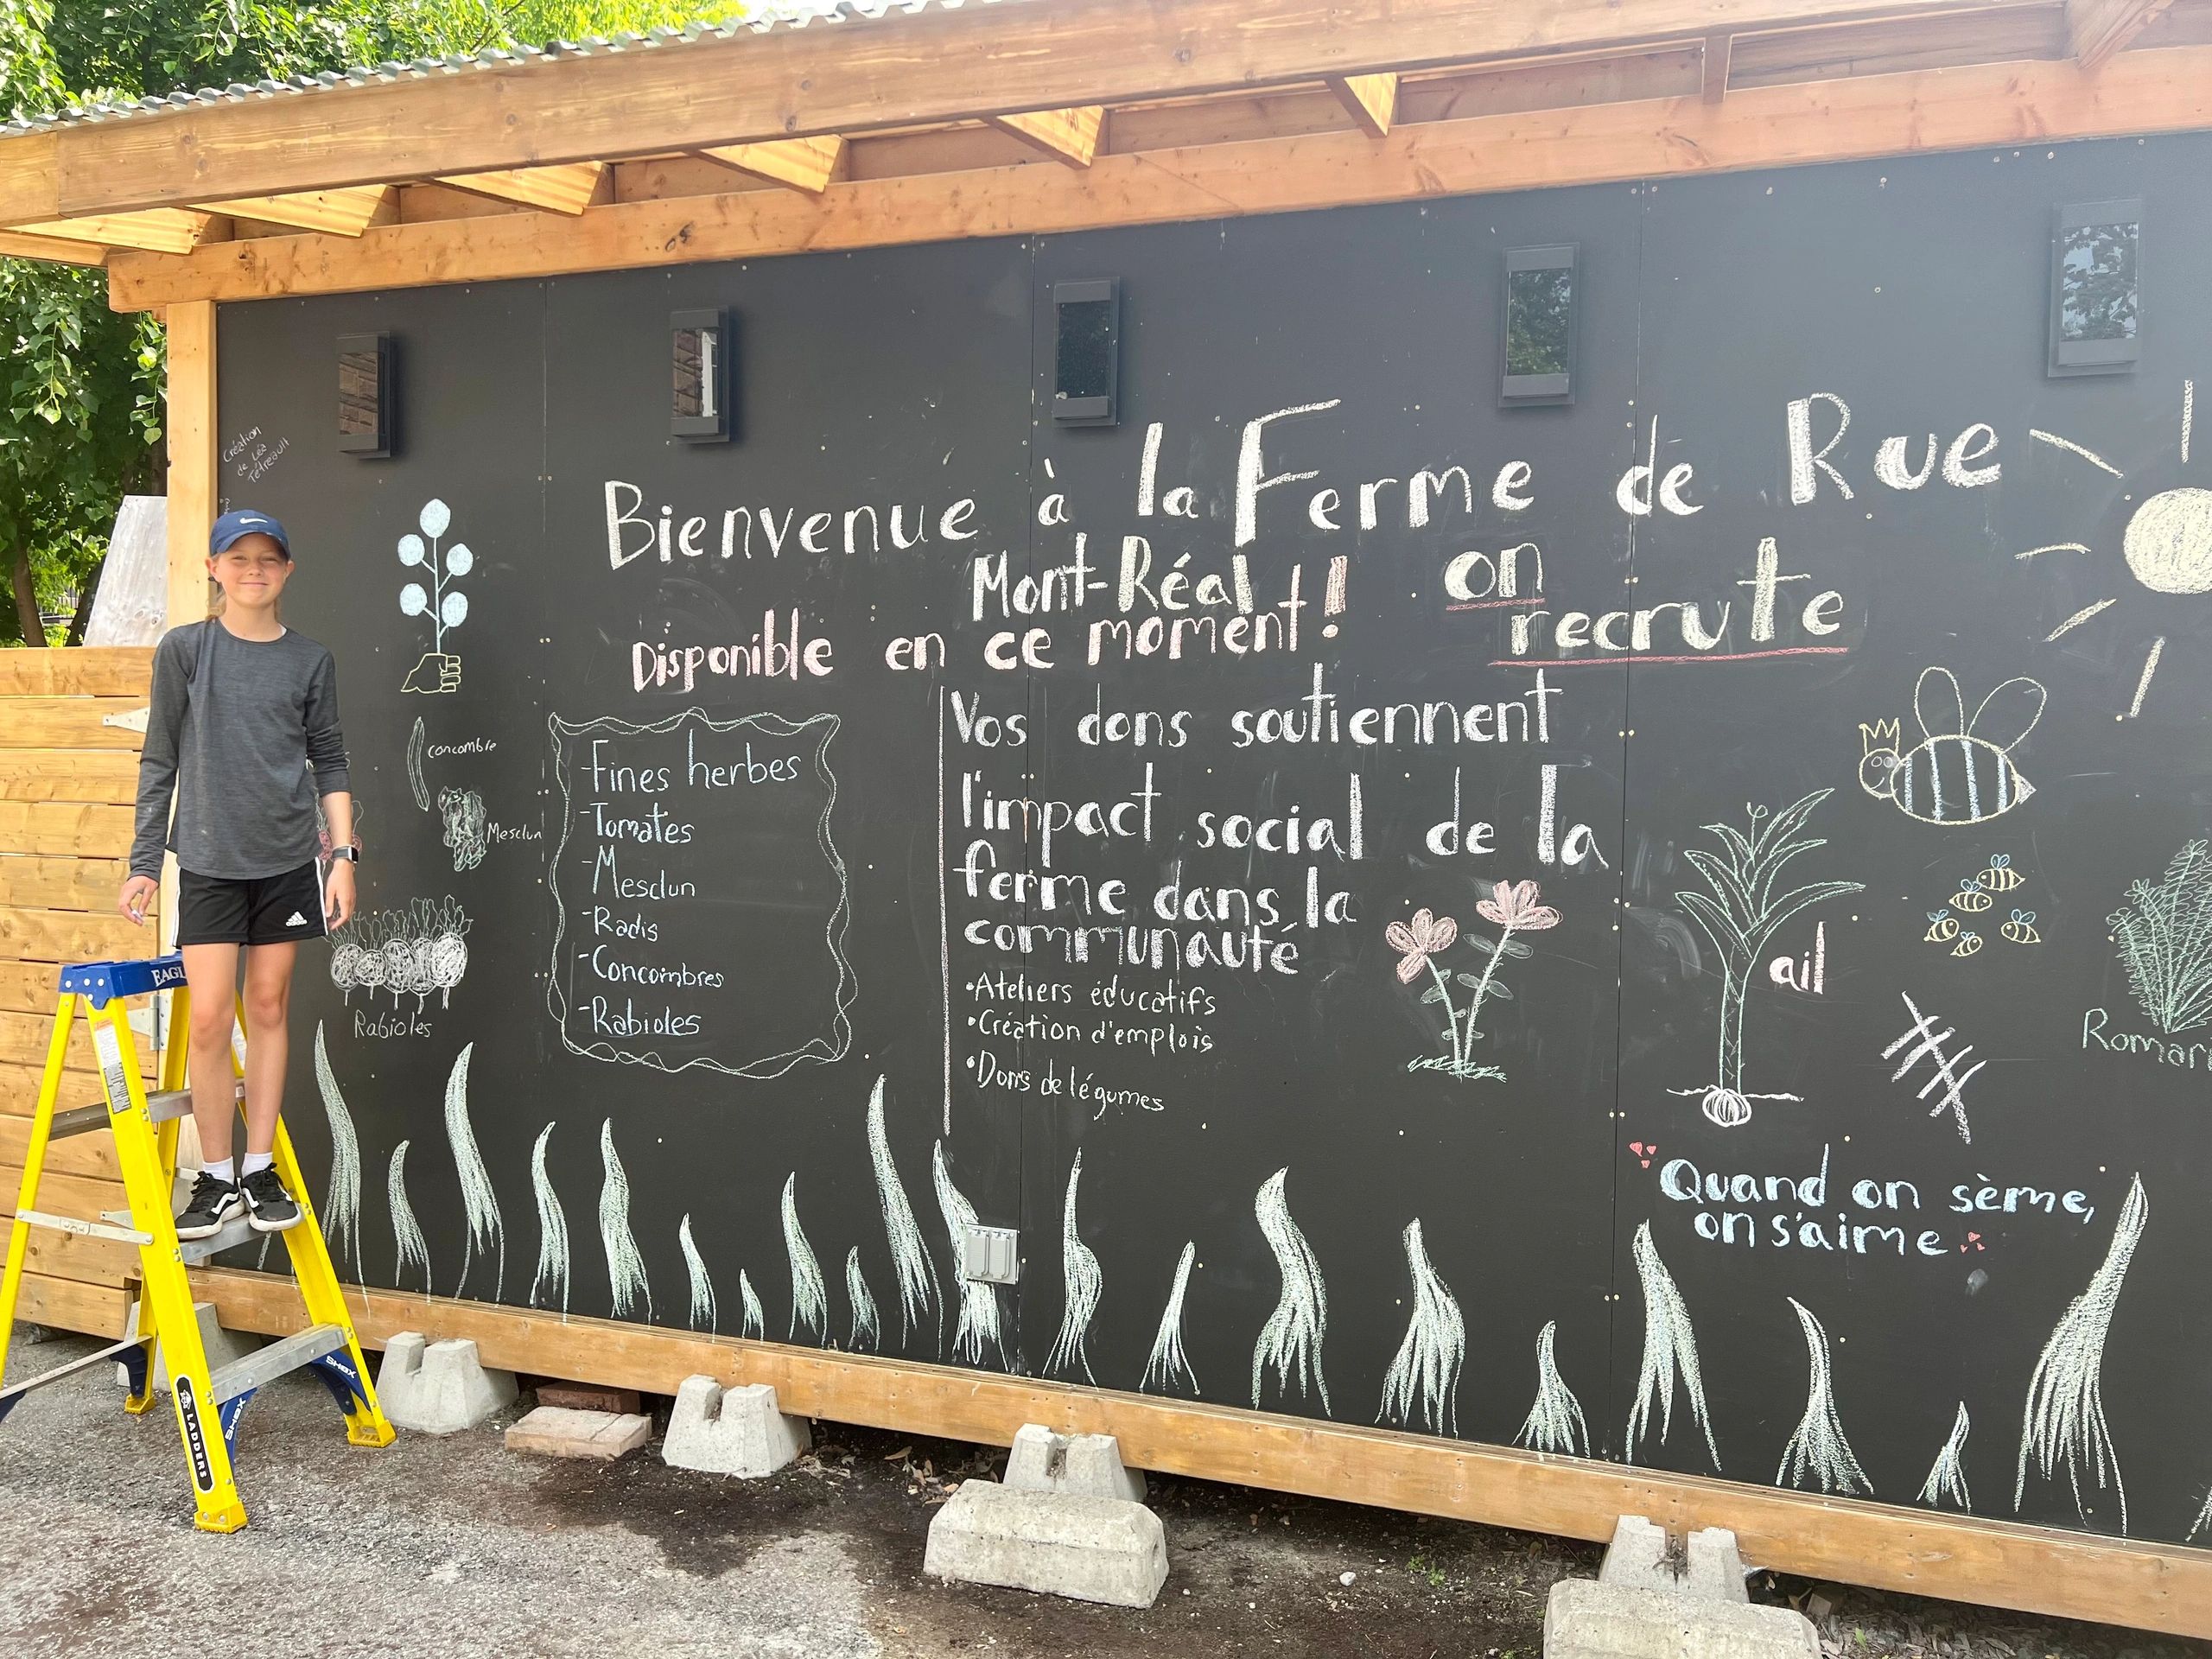 Création
de Léa
Tétreault
Bienvenue à la Ferme de Rue
Mont-Réal
on
recrute
Disponible en ce moment!
concombre
Mesclun
Rabioles
-Fines herbes
-Tomates
-Mesclun
-Radis
-Concombres
-Rabioles
Vos dons soutiennent
l'impact social de la
ferme dans la
communauté
•Ateliers éducatifs
•Création d'emplois
•Dons de légumes
ail
Quand on sème,
on s'aime
EAGL
LADDERS
SHOX
SHOX